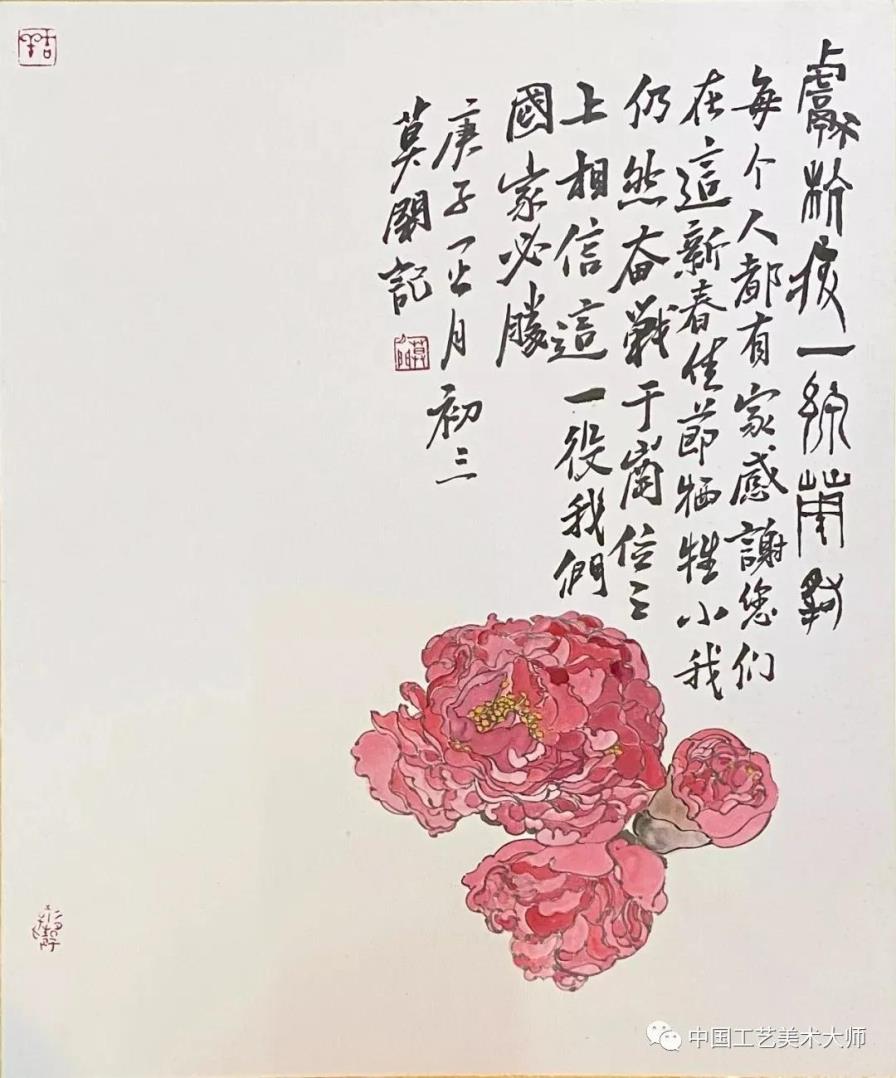 疫一線
每个人都有家感謝您们
在這新春佳節牺牲小我
仍然奋戰于崗位之
上相信這一役我們
國家必勝
庚子正月初三
莫記
中国工艺美术大师